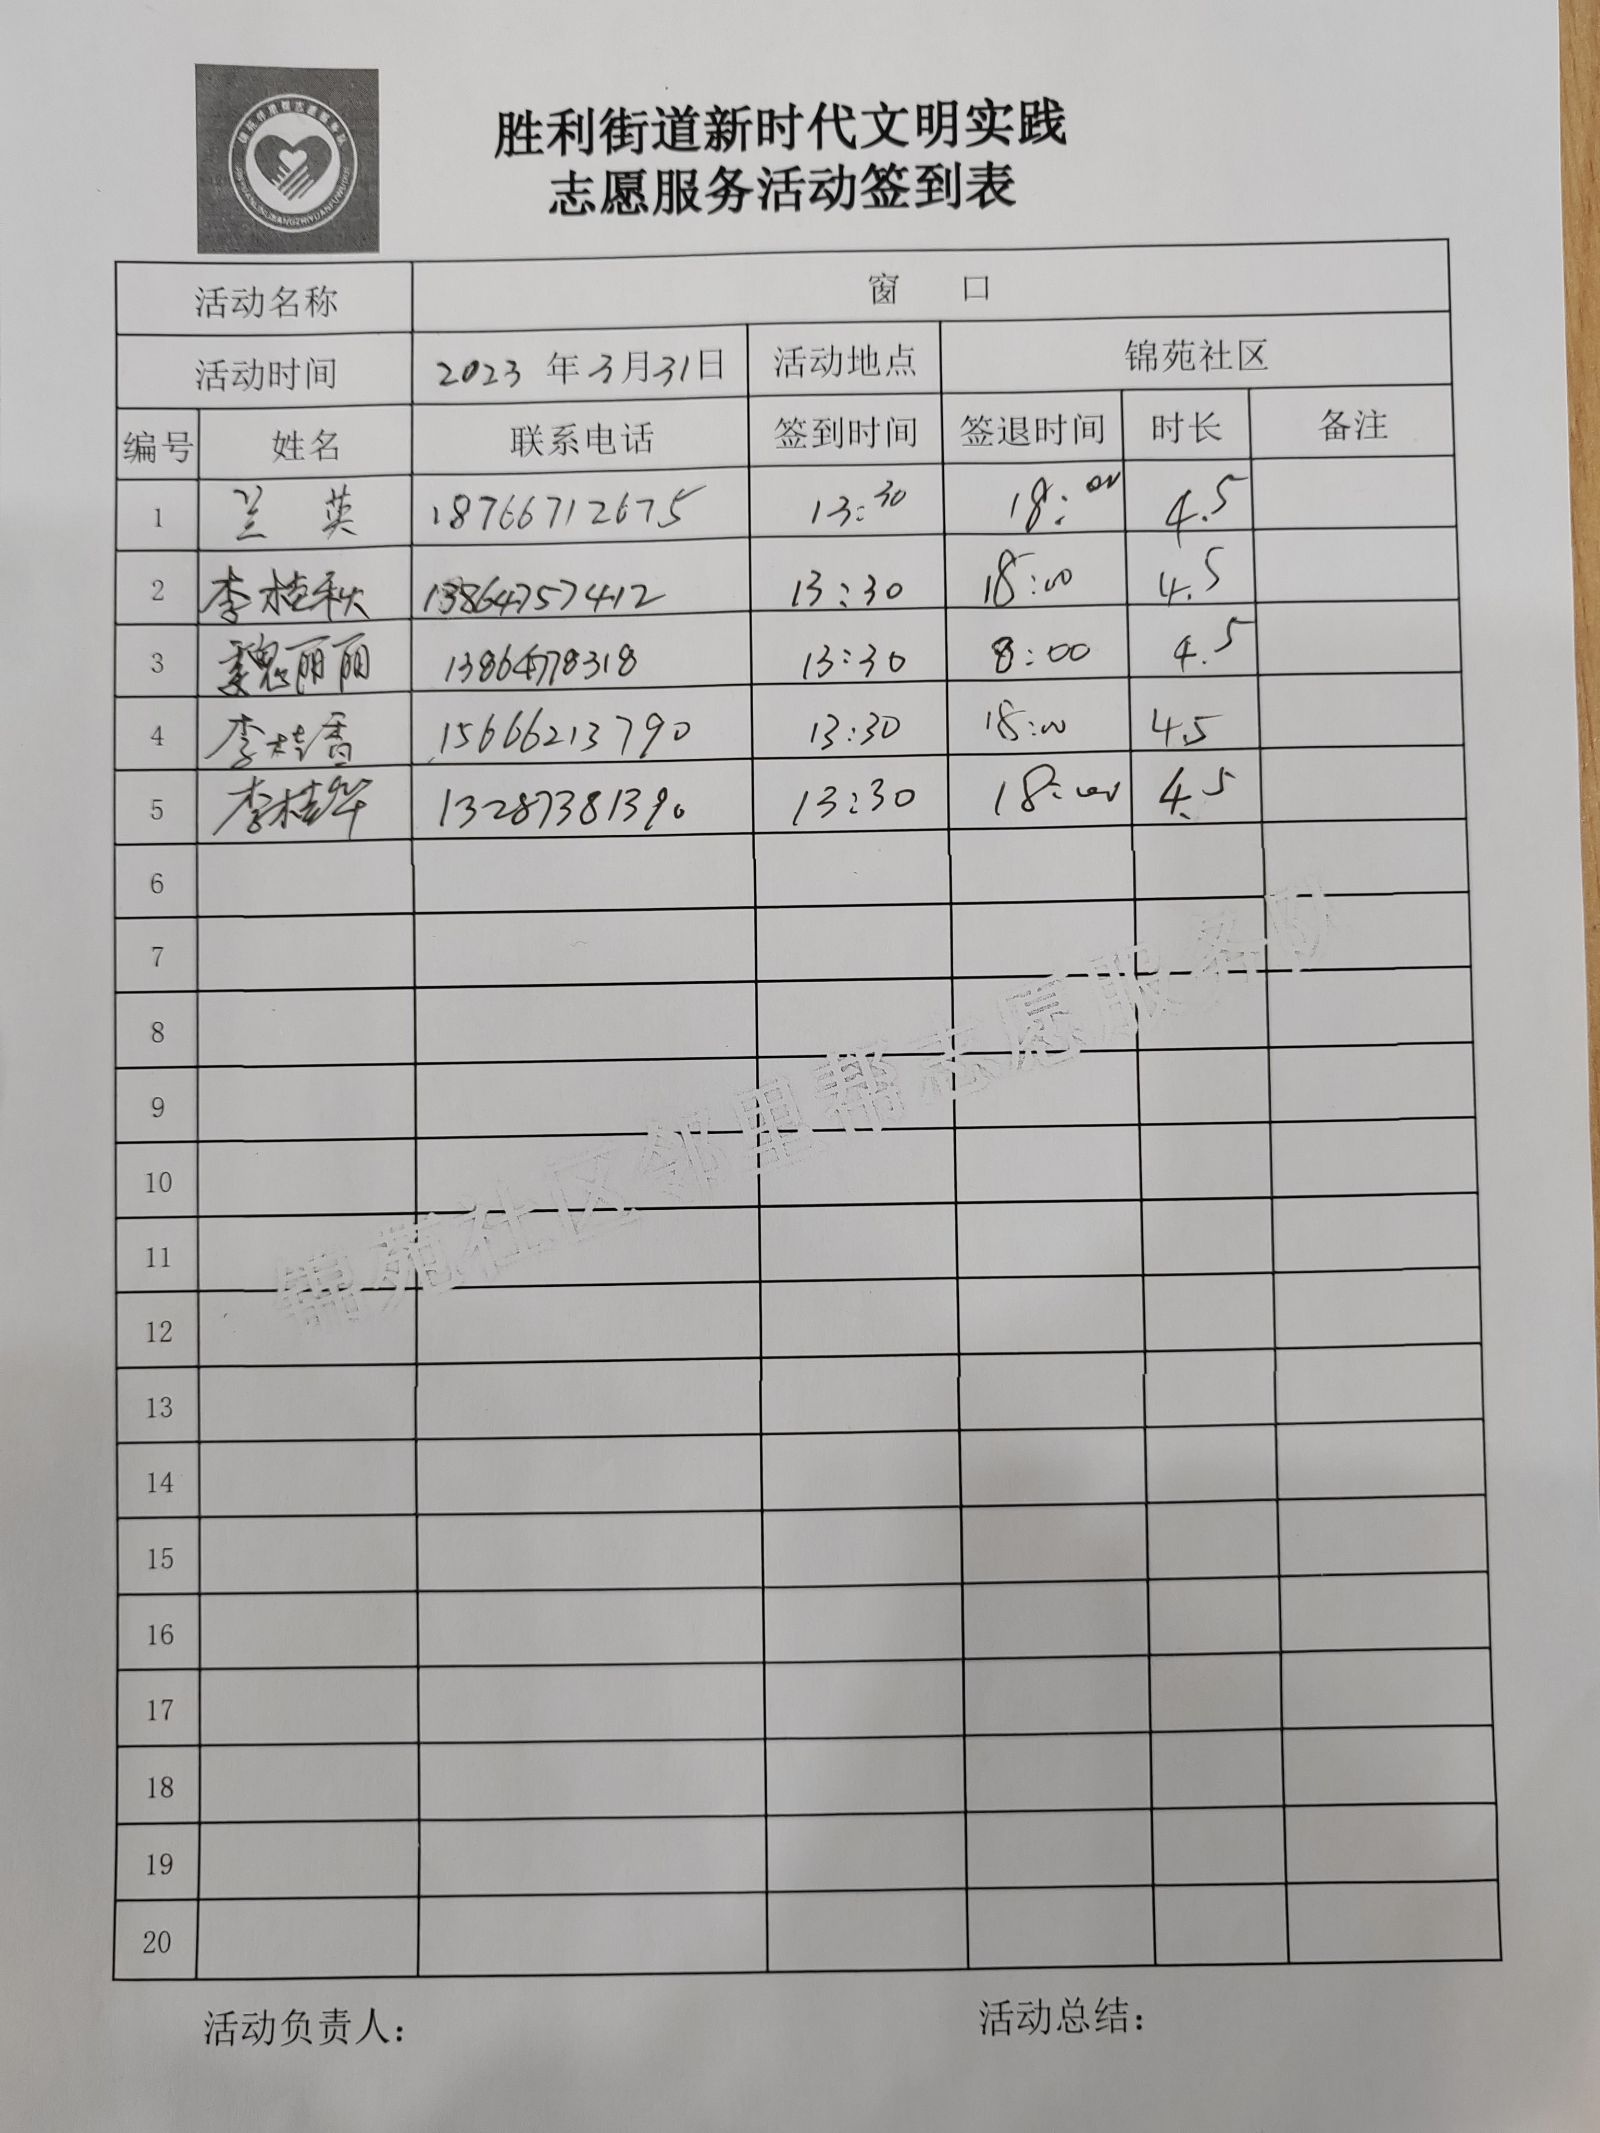 胜利街道新时代文明实践
志愿服务活动签到表
活动名称 窗 口
活动时间 2023 年 3月31日 活动地点 锦苑社区
编号 姓名 联系电话 签到时间 签退时间 时长 备注
1 兰 英 18766712675 13:30 18:00 4.5
2 李桂秋 13864757412 13:30 18:00 4.5
3 魏丽丽 13864778318 13:30 8:00 4.5
4 李桂香 15666213790 13:30 18:00 4.5
5 李桂华 13287381390 13:30 18:00 4.5
6
7
8
9
10
11
12
13
14
15
16
17
18
19
20
锦苑社区邻里帮志愿服务队
活动负责人: 活动总结: